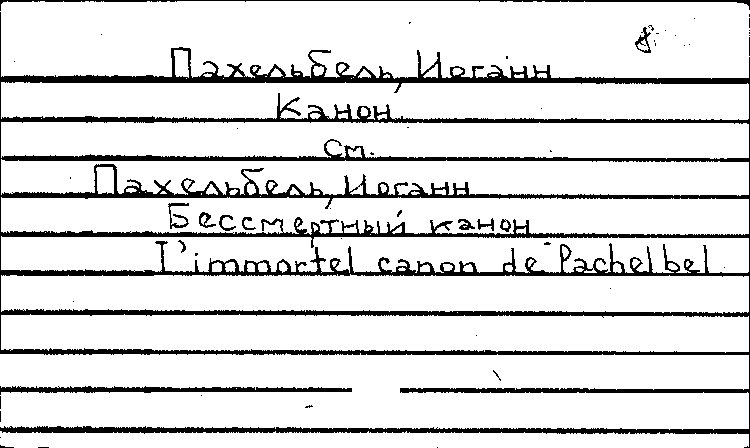 Пахельбель, Иоганн
Канон.
см.
Пахельбель, Иоганн
Бессмертный канон
I'immortel canon de Pachelbel